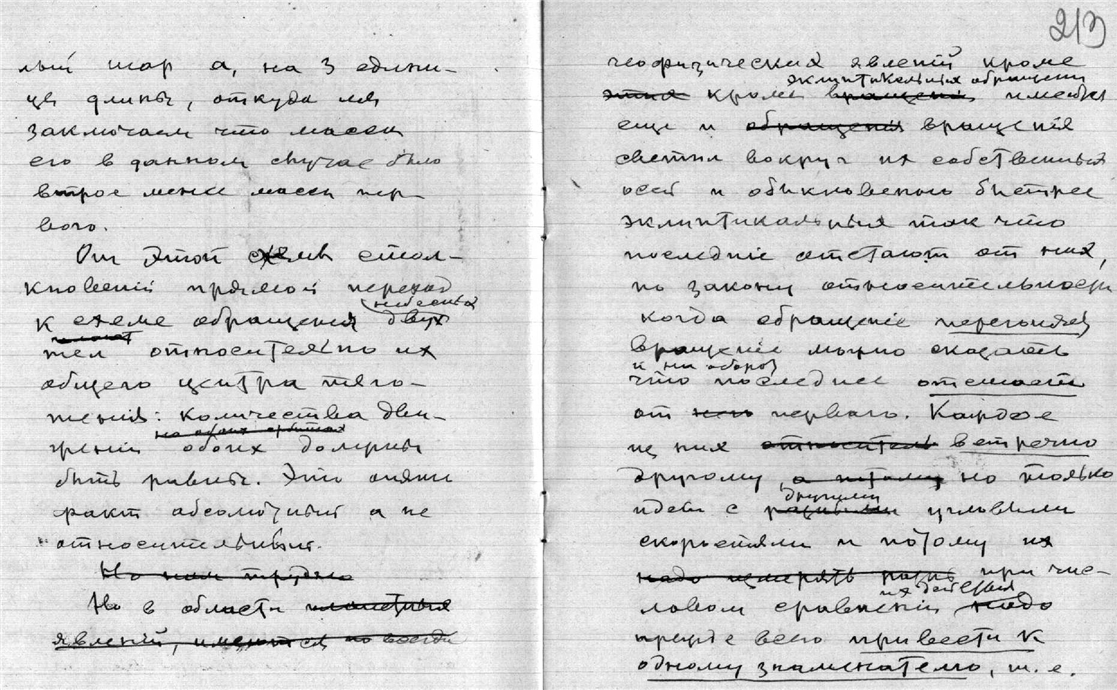 лый шар а, на 3 едини-
цы длины, откуда мы
заключаем что масса
его в данном случае была
втрое менее массы пер-
вого.
От этой схемы стол-
кновений прямой переход
небесных
к схеме обращения двух
тел относительно их
общего центра тяго-
тения: количества дви-
на обоих орбитах
жений обоих должны
быть равны. Это опять
факт абсолютный а не
относительный.
Но нам трудно
Но в области планетных
явлений, имеются но всегда
213
геофизических явлений кроме
эклиптикальных обращений
этих кроме вращений имеются
еще и обращения вращения
светил вокруг их собственных
осей и обыкновенно быстрее
эклиптикальных так что
последние отстают от них,
по закону относительности
когда обращение перегоняет
вращение можно сказать
и на оборот
что последнее отстает
от него первого. Каждое
из них относител встречно
другому, а потому но только
другими
идет с разными угловыми
скоростями и потому их
надо измерять при чис-
их действия
ловом сравнении надо
прежде всего привести к
одному знаменателю, т.е.